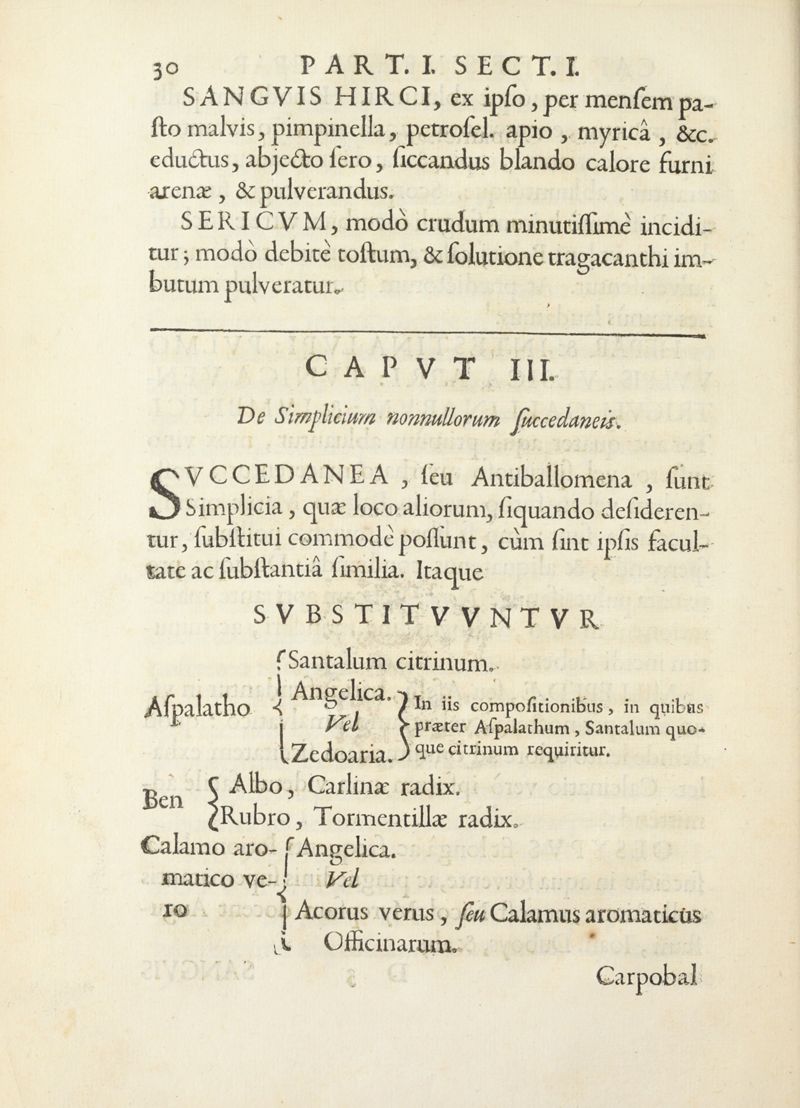 30 PART. I. SECT. I.
SANGVIS HIRCI, ex ipſo, per menſem pa-
ſto malvis, pimpinella, petroſel. apio, myricâ, &c.
eductus, abjecto ſero, ſiccandus blando calore furni
arenæ, & pulverandus.
SERICVM, modò crudum minutiſſimè incidi-
tur; modò debitè toſtum, & ſolutione tragacanthi im-
butum pulveratur.
CAPVT III.
De Simplicium nonnullorum ſuccedaneis.
SVCCEDANEA, ſeu Antiballomena, ſunt
Simplicia, quæ loco aliorum, ſiquando deſideren-
tur, ſubſtitui commodè poſſunt, cùm ſint ipſis facul-
tate ac ſubſtantiâ ſimilia. Itaque
SVBSTITVVNTVR
Santalum citrinum.
Aſpalatho { Angelica. } In iis compoſitionibus, in quibus
Vel præter Aſpalathum, Santalum quo-
Zedoaria. que citrinum requiritur.
Ben { Albo, Carlinæ radix.
Rubro, Tormentillæ radix.
Calamo aro- { Angelica.
matico ve- Vel
ro Acorus verus, ſeu Calamus aromaticus
Officinarum.
Carpobal